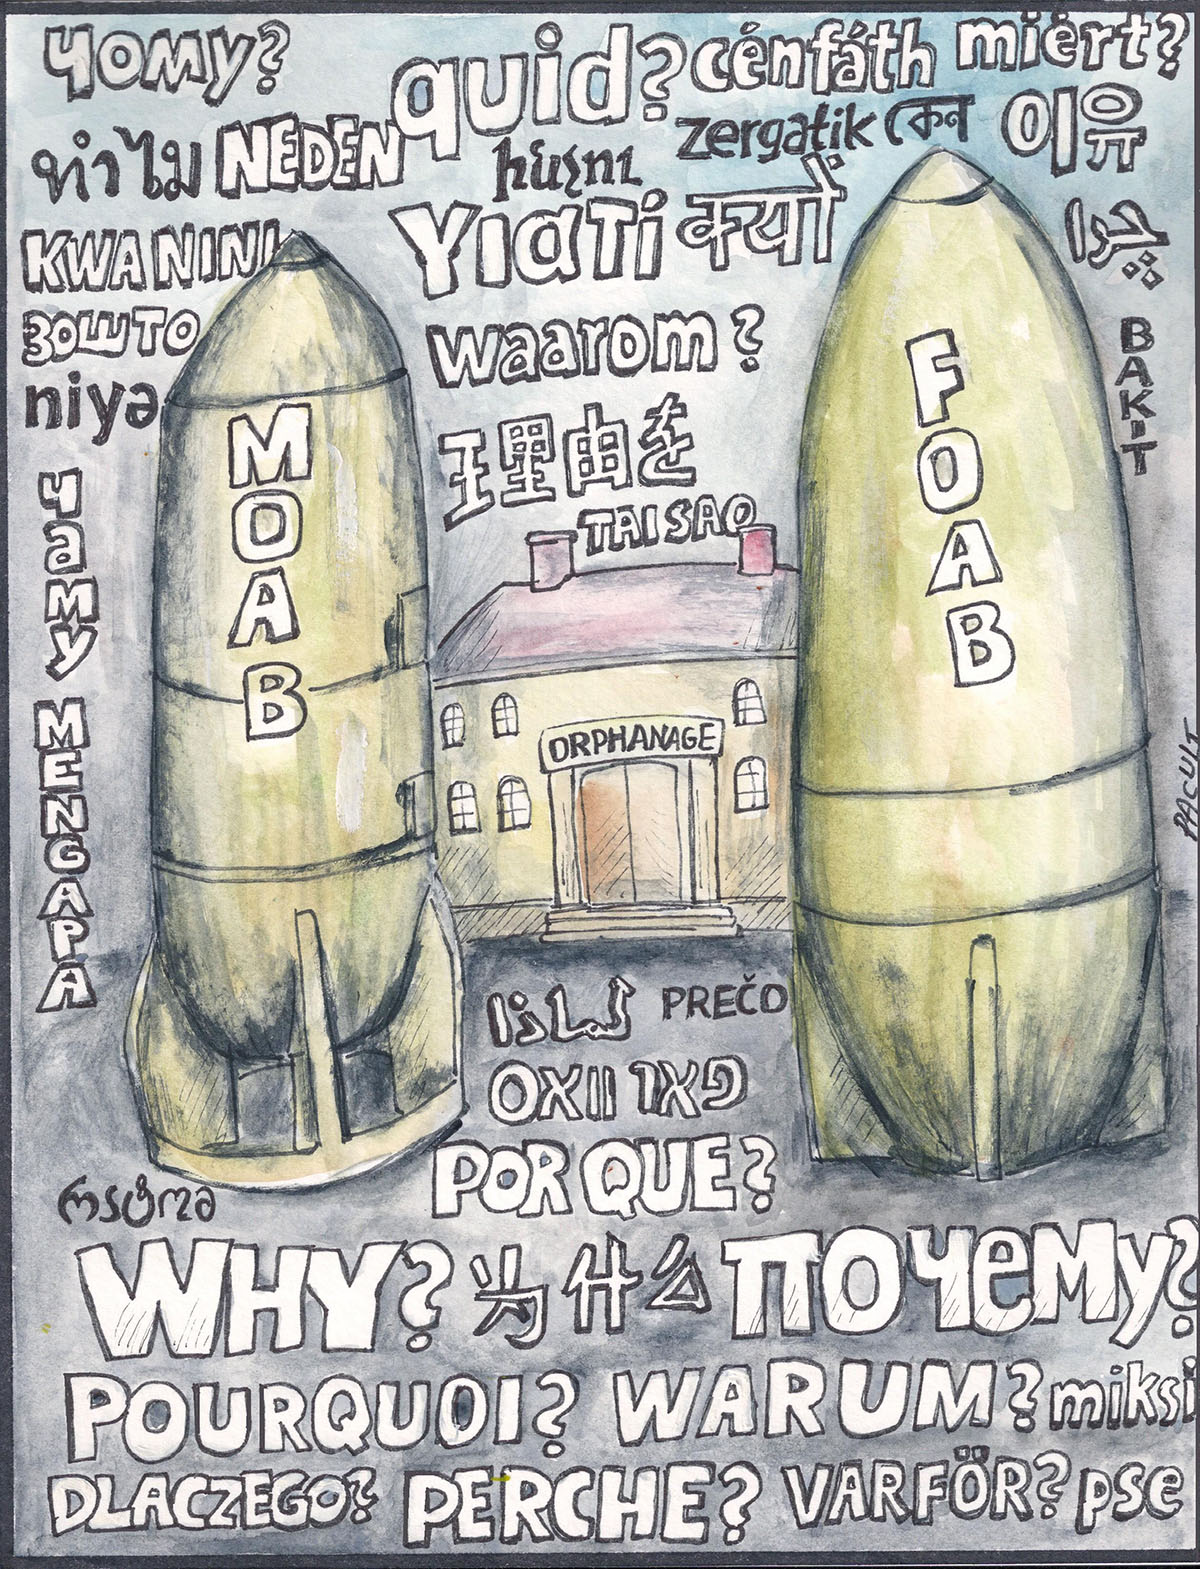 Чому?
quid?
cénfáth
miért?
ทำไม
NEDEN
ինչու
zergatik
কেন
이유
KWANINI
Yιατί
क्यों
چرا
зошто
waarom?
BAKIT
niyə
理由を
TAI SAO
чаму
MENGAPA
MOAB
FOAB
ORPHANAGE
PACUT
لماذا
PREČO
פאר וואס
POR QUE?
რატომ
WHY?
为什么
почему?
POURQUOI?
WARUM?
miksi
DLACZEGO?
PERCHE?
VARFÖR?
pse